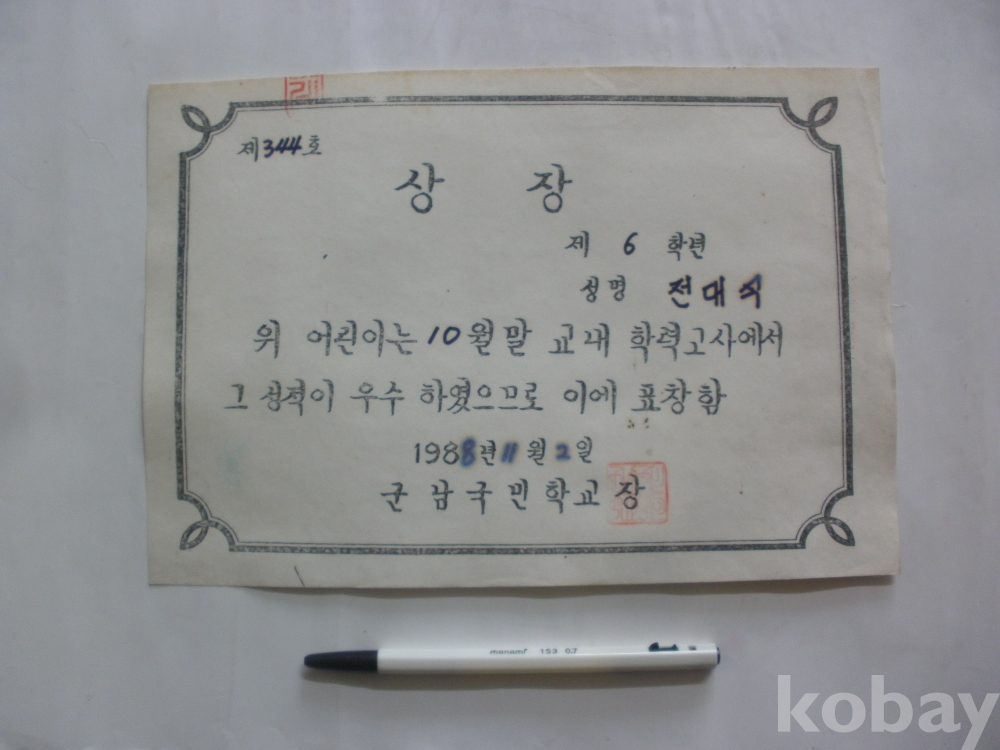 제344호
상 장
제 6 학년
성명 전대식
위 어린이는 10월말 교내 학력고사에서
그 성적이 우수 하였으므로 이에 표창함
1988년 11월 2일
군남국민학교장
monami 153 0.7
kobay